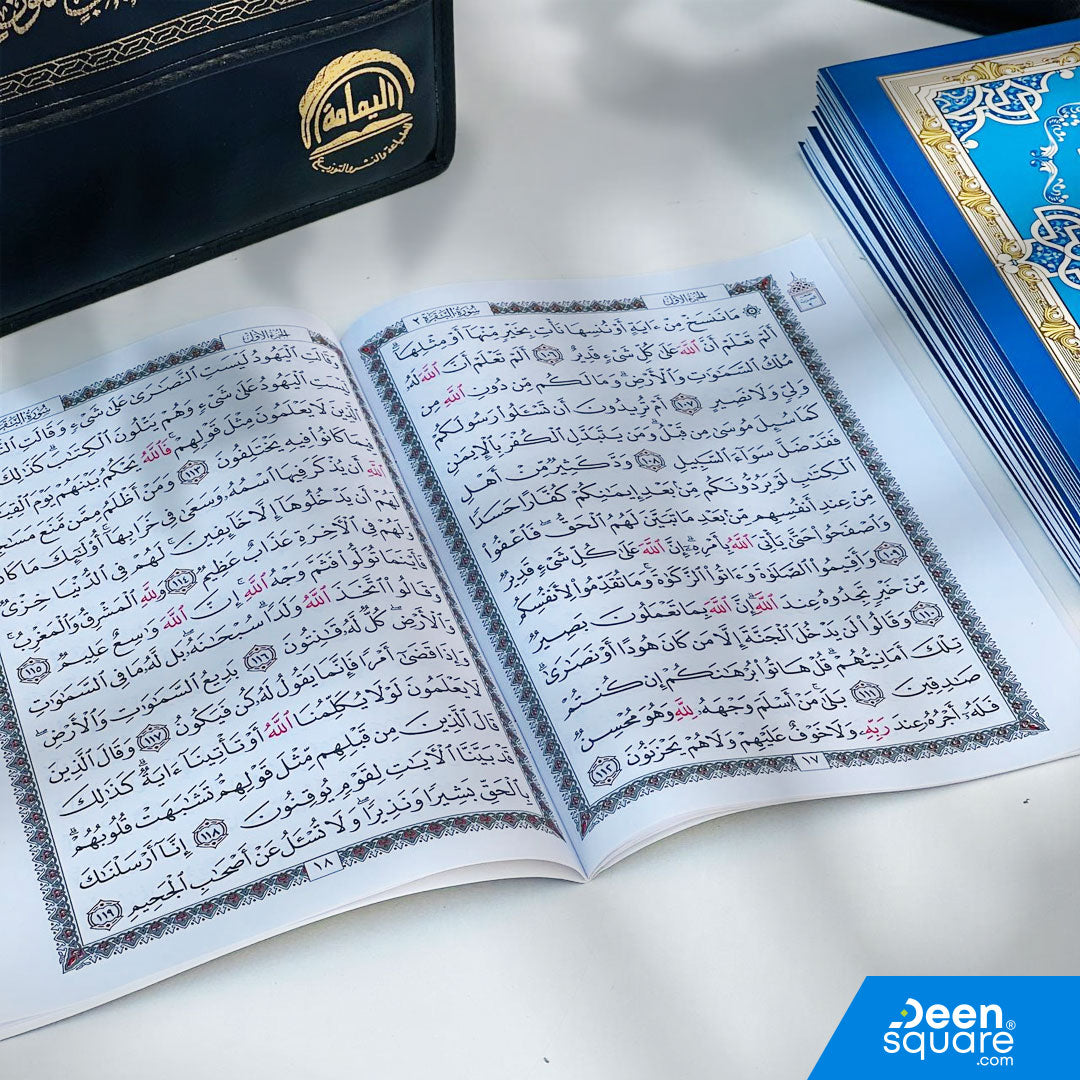 اليمامة
للطباعة والنشر والتوزيع
سُورَةُ البَقَرَةِ ٢
الجُزءُ الأوَّلُ
مَا نَنسَخْ مِنْ ءَايَةٍ أَوْ نُنسِهَا نَأْتِ بِخَيْرٍ مِّنْهَا أَوْ مِثْلِهَآ ۗ
أَلَمْ تَعْلَمْ أَنَّ ٱللَّهَ عَلَىٰ كُلِّ شَىْءٍ قَدِيرٌ ١٠٦ أَلَمْ تَعْلَمْ أَنَّ ٱللَّهَ لَهُۥ
مُلْكُ ٱلسَّمَٰوَٰتِ وَٱلْأَرْضِ ۗ وَمَا لَكُم مِّن دُونِ ٱللَّهِ مِن
وَلِىٍّ وَلَا نَصِيرٍ ١٠٧ أَمْ تُرِيدُونَ أَن تَسْـَٔلُوا۟ رَسُولَكُمْ
كَمَا سُئِلَ مُوسَىٰ مِن قَبْلُ ۗ وَمَن يَتَبَدَّلِ ٱلْكُفْرَ بِٱلْإِيمَٰنِ
فَقَدْ ضَلَّ سَوَآءَ ٱلسَّبِيلِ ١٠٨ وَدَّ كَثِيرٌ مِّنْ أَهْلِ
ٱلْكِتَٰبِ لَوْ يَرُدُّونَكُم مِّنۢ بَعْدِ إِيمَٰنِكُمْ كُفَّارًا حَسَدًا
مِّنْ عِندِ أَنفُسِهِم مِّنۢ بَعْدِ مَا تَبَيَّنَ لَهُمُ ٱلْحَقُّ ۖ فَٱعْفُوا۟
وَٱصْفَحُوا۟ حَتَّىٰ يَأْتِىَ ٱللَّهُ بِأَمْرِهِۦٓ ۗ إِنَّ ٱللَّهَ عَلَىٰ كُلِّ شَىْءٍ قَدِيرٌ
١٠٩ وَأَقِيمُوا۟ ٱلصَّلَوٰةَ وَءَاتُوا۟ ٱلزَّكَوٰةَ ۚ وَمَا تُقَدِّمُوا۟ لِأَنفُسِكُم
مِّنْ خَيْرٍ تَجِدُوهُ عِندَ ٱللَّهِ ۗ إِنَّ ٱللَّهَ بِمَا تَعْمَلُونَ بَصِيرٌ
١١٠ وَقَالُوا۟ لَن يَدْخُلَ ٱلْجَنَّةَ إِلَّا مَن كَانَ هُودًا أَوْ نَصَٰرَىٰ ۗ
تِلْكَ أَمَانِيُّهُمْ ۗ قُلْ هَاتُوا۟ بُرْهَٰنَكُمْ إِن كُنتُمْ
صَٰدِقِينَ ١١١ بَلَىٰ مَنْ أَسْلَمَ وَجْهَهُۥ لِلَّهِ وَهُوَ مُحْسِنٌ
فَلَهُۥٓ أَجْرُهُۥ عِندَ رَبِّهِۦ وَلَا خَوْفٌ عَلَيْهِمْ وَلَا هُمْ يَحْزَنُونَ ١١٢
١٧
الجُزءُ الأوَّلُ
وَقَالَتِ ٱلْيَهُودُ لَيْسَتِ ٱلنَّصَٰرَىٰ عَلَىٰ شَىْءٍ وَقَالَتِ
لَيْسَتِ ٱلْيَهُودُ عَلَىٰ شَىْءٍ وَهُمْ يَتْلُونَ ٱلْكِتَٰبَ ۗ كَذَٰلِكَ
ٱلَّذِينَ لَا يَعْلَمُونَ مِثْلَ قَوْلِهِمْ ۚ فَٱللَّهُ يَحْكُمُ بَيْنَهُمْ يَوْمَ
كَانُوا۟ فِيهِ يَخْتَلِفُونَ ١١٣ وَمَنْ أَظْلَمُ مِمَّن مَّنَعَ
ٱللَّهِ أَن يُذْكَرَ فِيهَا ٱسْمُهُۥ وَسَعَىٰ فِى خَرَابِهَآ ۚ أُو۟لَٰٓئِكَ مَا كَانَ
لَهُمْ أَن يَدْخُلُوهَآ إِلَّا خَآئِفِينَ ۚ لَهُمْ فِى ٱلدُّنْيَا خِزْىٌ
لَهُمْ فِى ٱلْءَاخِرَةِ عَذَابٌ عَظِيمٌ ١١٤ وَلِلَّهِ ٱلْمَشْرِقُ وَٱلْمَغْرِبُ ۚ
فَأَيْنَمَا تُوَلُّوا۟ فَثَمَّ وَجْهُ ٱللَّهِ ۚ إِنَّ ٱللَّهَ وَٰسِعٌ عَلِيمٌ ١١٥
وَقَالُوا۟ ٱتَّخَذَ ٱللَّهُ وَلَدًا ۗ سُبْحَٰنَهُۥ ۖ بَل لَّهُۥ مَا فِى ٱلسَّمَٰوَٰتِ
وَٱلْأَرْضِ ۖ كُلٌّ لَّهُۥ قَٰنِتُونَ ١١٦ بَدِيعُ ٱلسَّمَٰوَٰتِ وَٱلْأَرْضِ ۖ
وَإِذَا قَضَىٰٓ أَمْرًا فَإِنَّمَا يَقُولُ لَهُۥ كُن فَيَكُونُ ١١٧ وَقَالَ ٱلَّذِينَ
لَا يَعْلَمُونَ لَوْلَا يُكَلِّمُنَا ٱللَّهُ أَوْ تَأْتِينَآ ءَايَةٌ ۗ كَذَٰلِكَ
قَالَ ٱلَّذِينَ مِن قَبْلِهِم مِّثْلَ قَوْلِهِمْ ۘ تَشَٰبَهَتْ قُلُوبُهُمْ ۗ
قَدْ بَيَّنَّا ٱلْءَايَٰتِ لِقَوْمٍ يُوقِنُونَ ١١٨ إِنَّآ أَرْسَلْنَٰكَ
بِٱلْحَقِّ بَشِيرًا وَنَذِيرًا ۖ وَلَا تُسْـَٔلُ عَنْ أَصْحَٰبِ ٱلْجَحِيمِ ١١٩
١٨
Deen
square®
.com